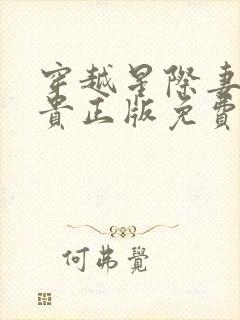 穿越星際妻
貴正版免費
何弗覺